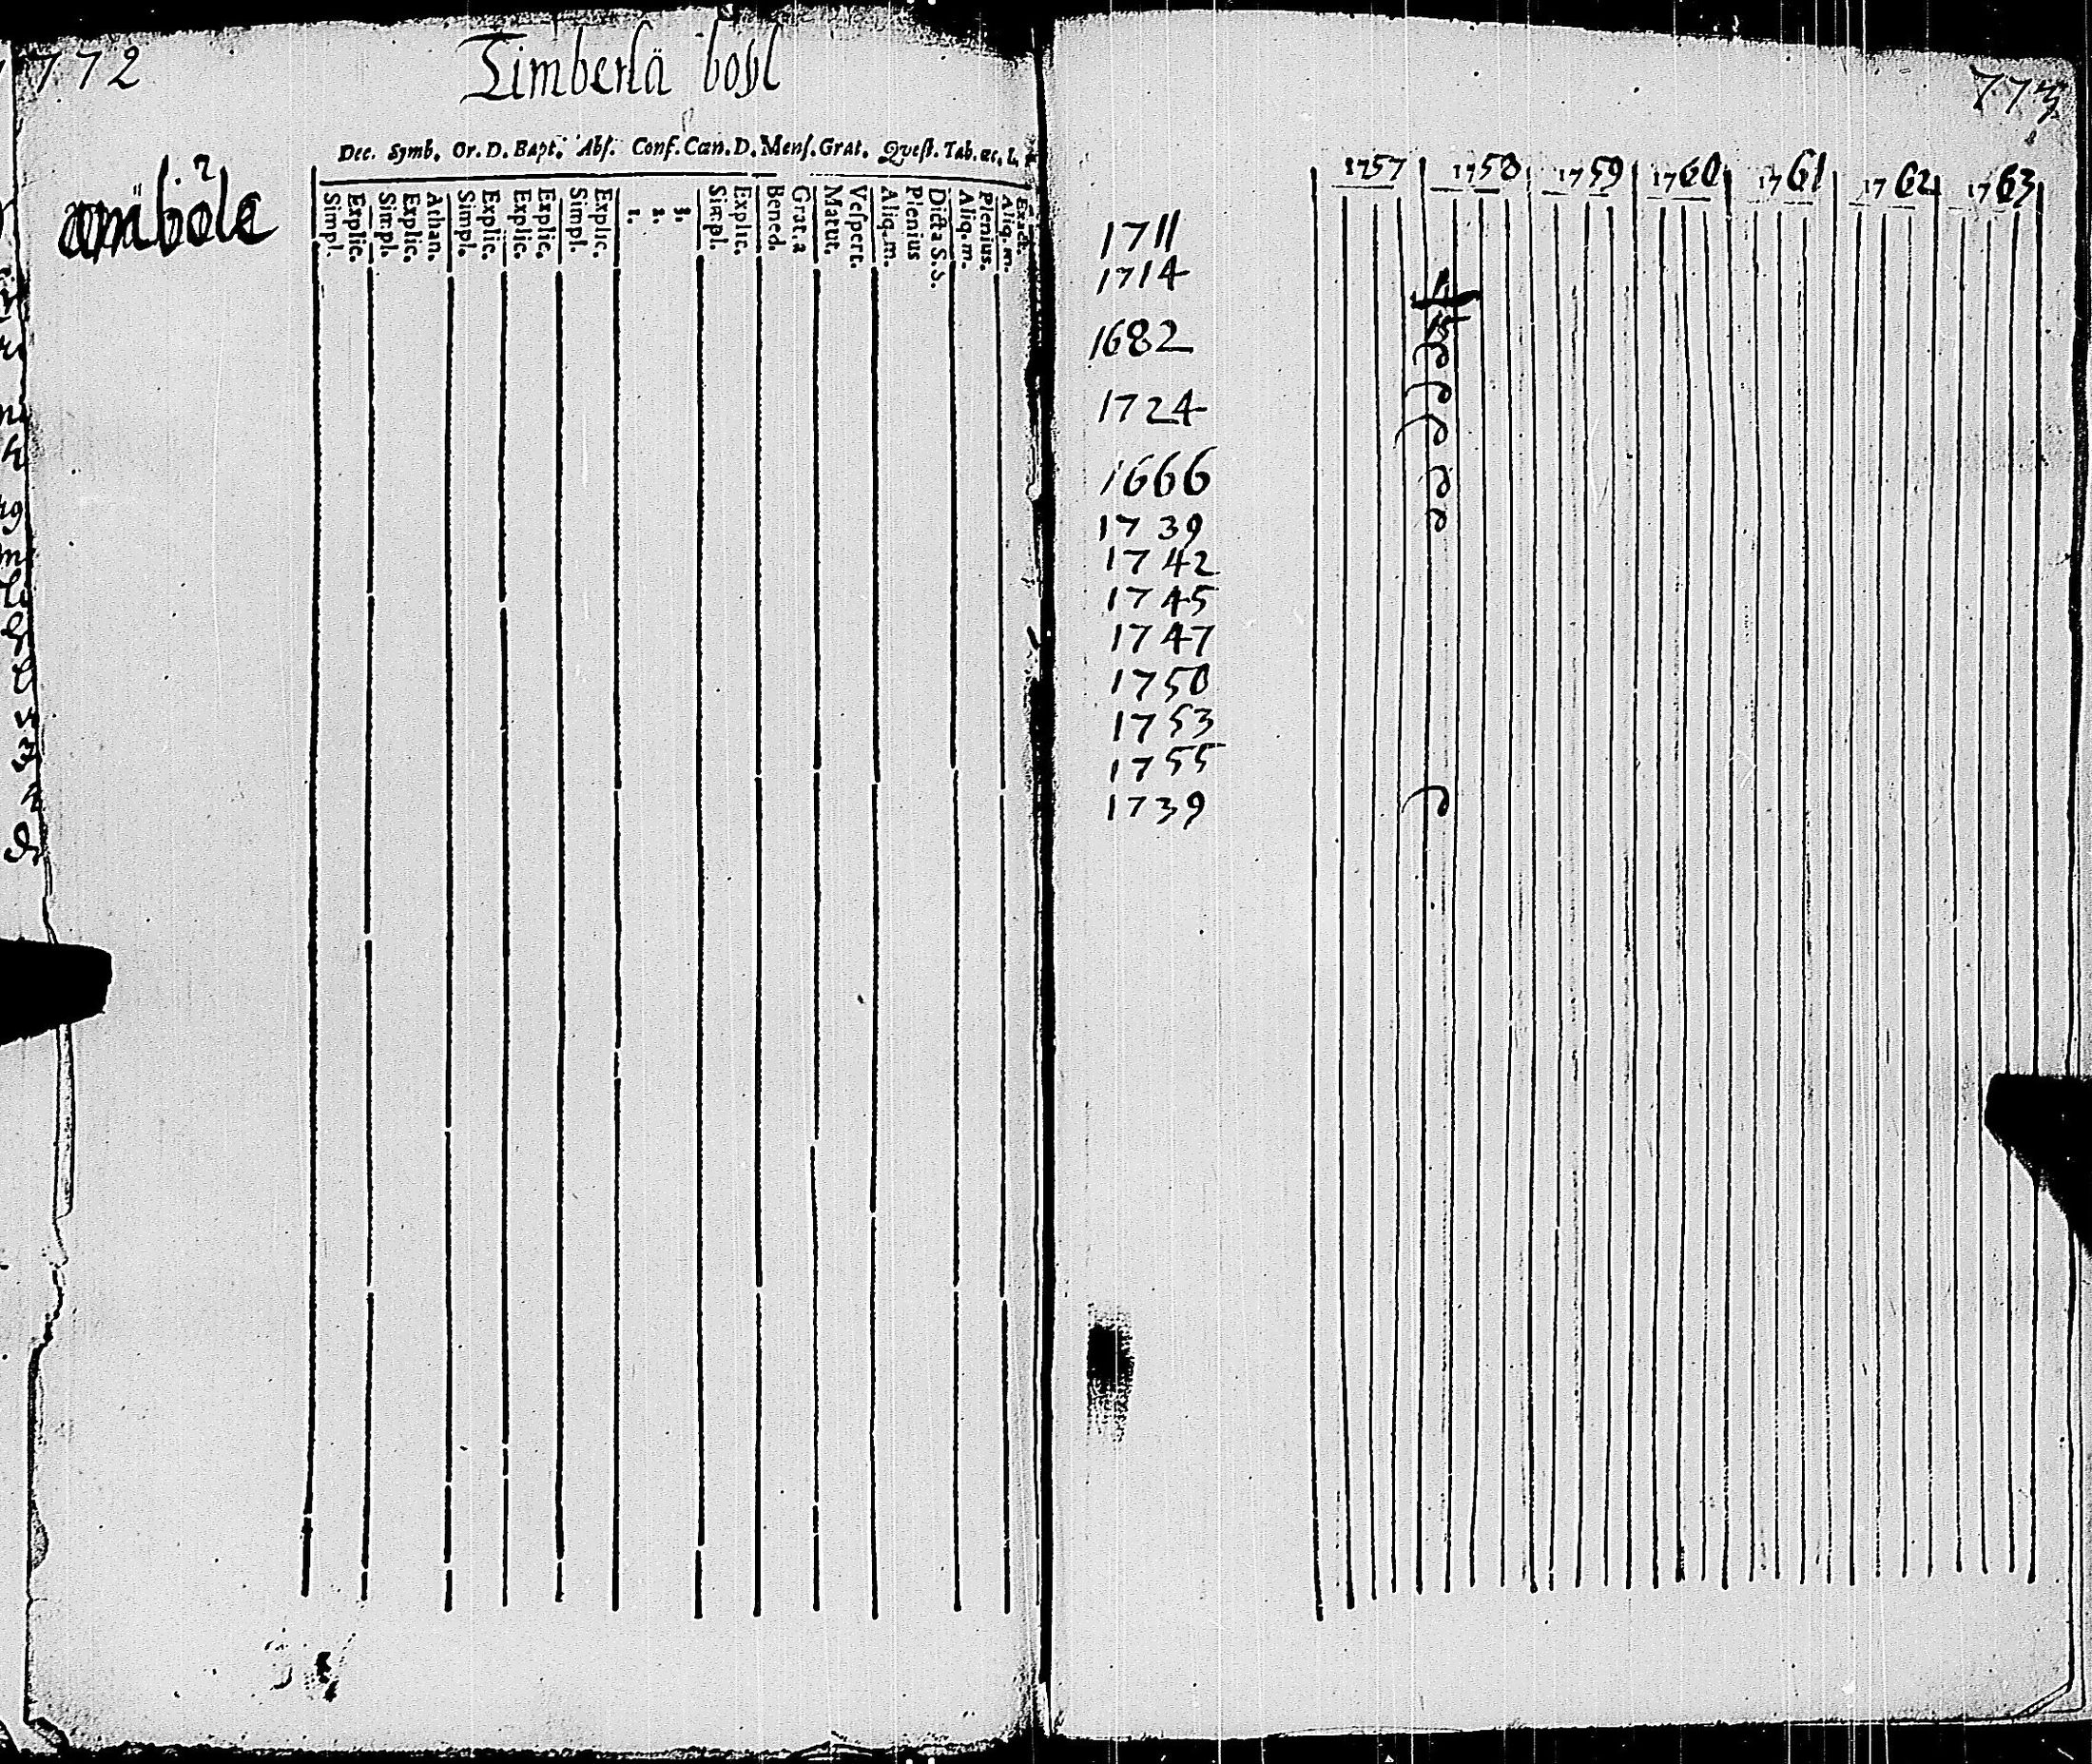 772
Timberla boyl
Dec. Symb. Or. D. Bapt. Abs. Conf. Cœn. D. Mens. Grat. Quest. Tab. œc. L.
Simpl.
Explic.
Simpl.
Explic.
Athan.
Simpl.
Explic.
Explic.
Explic.
Simpl.
Explic.
1.
2.
3.
Simpl.
Explic.
Bened.
Grat. a
Matut.
Vespert.
Aliq. m.
Plenius
Dicta S. S.
Aliq. m.
Plenius.
Aliq. m.
Exact.
773
1757 1758 1759 1760 1761 1762 1763
1711
1714
1682
1724
1666
1739
1742
1745
1747
1750
1753
1755
1739